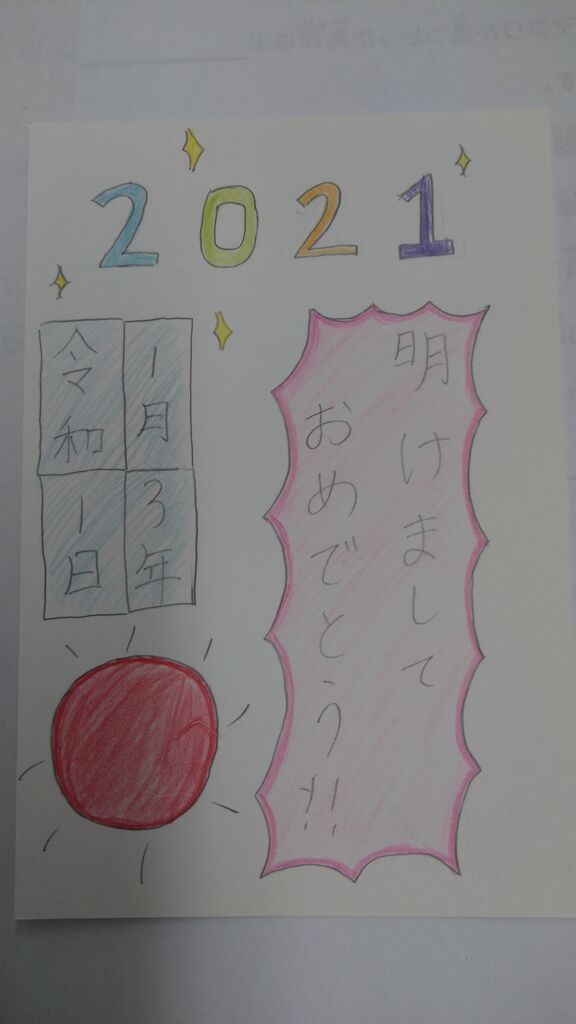 2021
明けまして
おめでとう!!
1月3年
令和1日